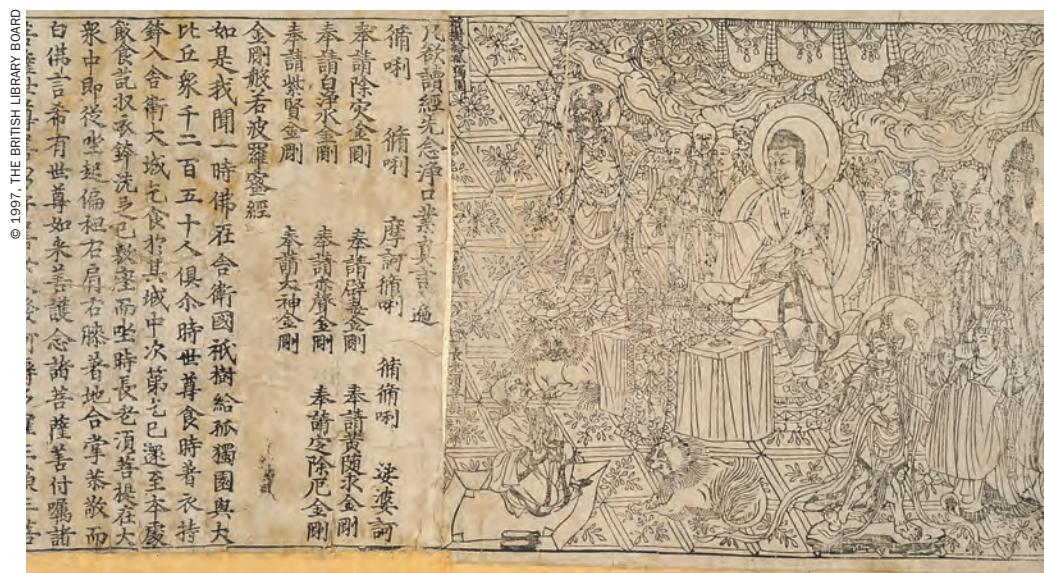 © 1997, THE BRITISH LIBRARY BOARD
凡欲讀經先念淨口業真言遍
脩唎 脩唎 摩訶脩唎 脩脩唎 娑婆訶
奉請除灾金剛 奉請辟毒金剛 奉請黄隨求金剛
奉請白淨水金剛 奉請赤聲金剛 奉請定除厄金剛
奉請紫賢金剛 奉請大神金剛
金剛般若波羅蜜經
如是我聞一時佛在舍衛國祇樹給孤獨園與大
比丘衆千二百五十人俱尒時世尊食時著衣持
鉢入舍衛大城乞食於其城中次第乞已還至本處
飯食訖収衣鉢洗足已敷座而坐時長老湏菩提在大
衆中即從坐起偏袒右肩右膝著地合掌恭敬而
白佛言希有世尊如来善護念諸菩薩善付囑諸